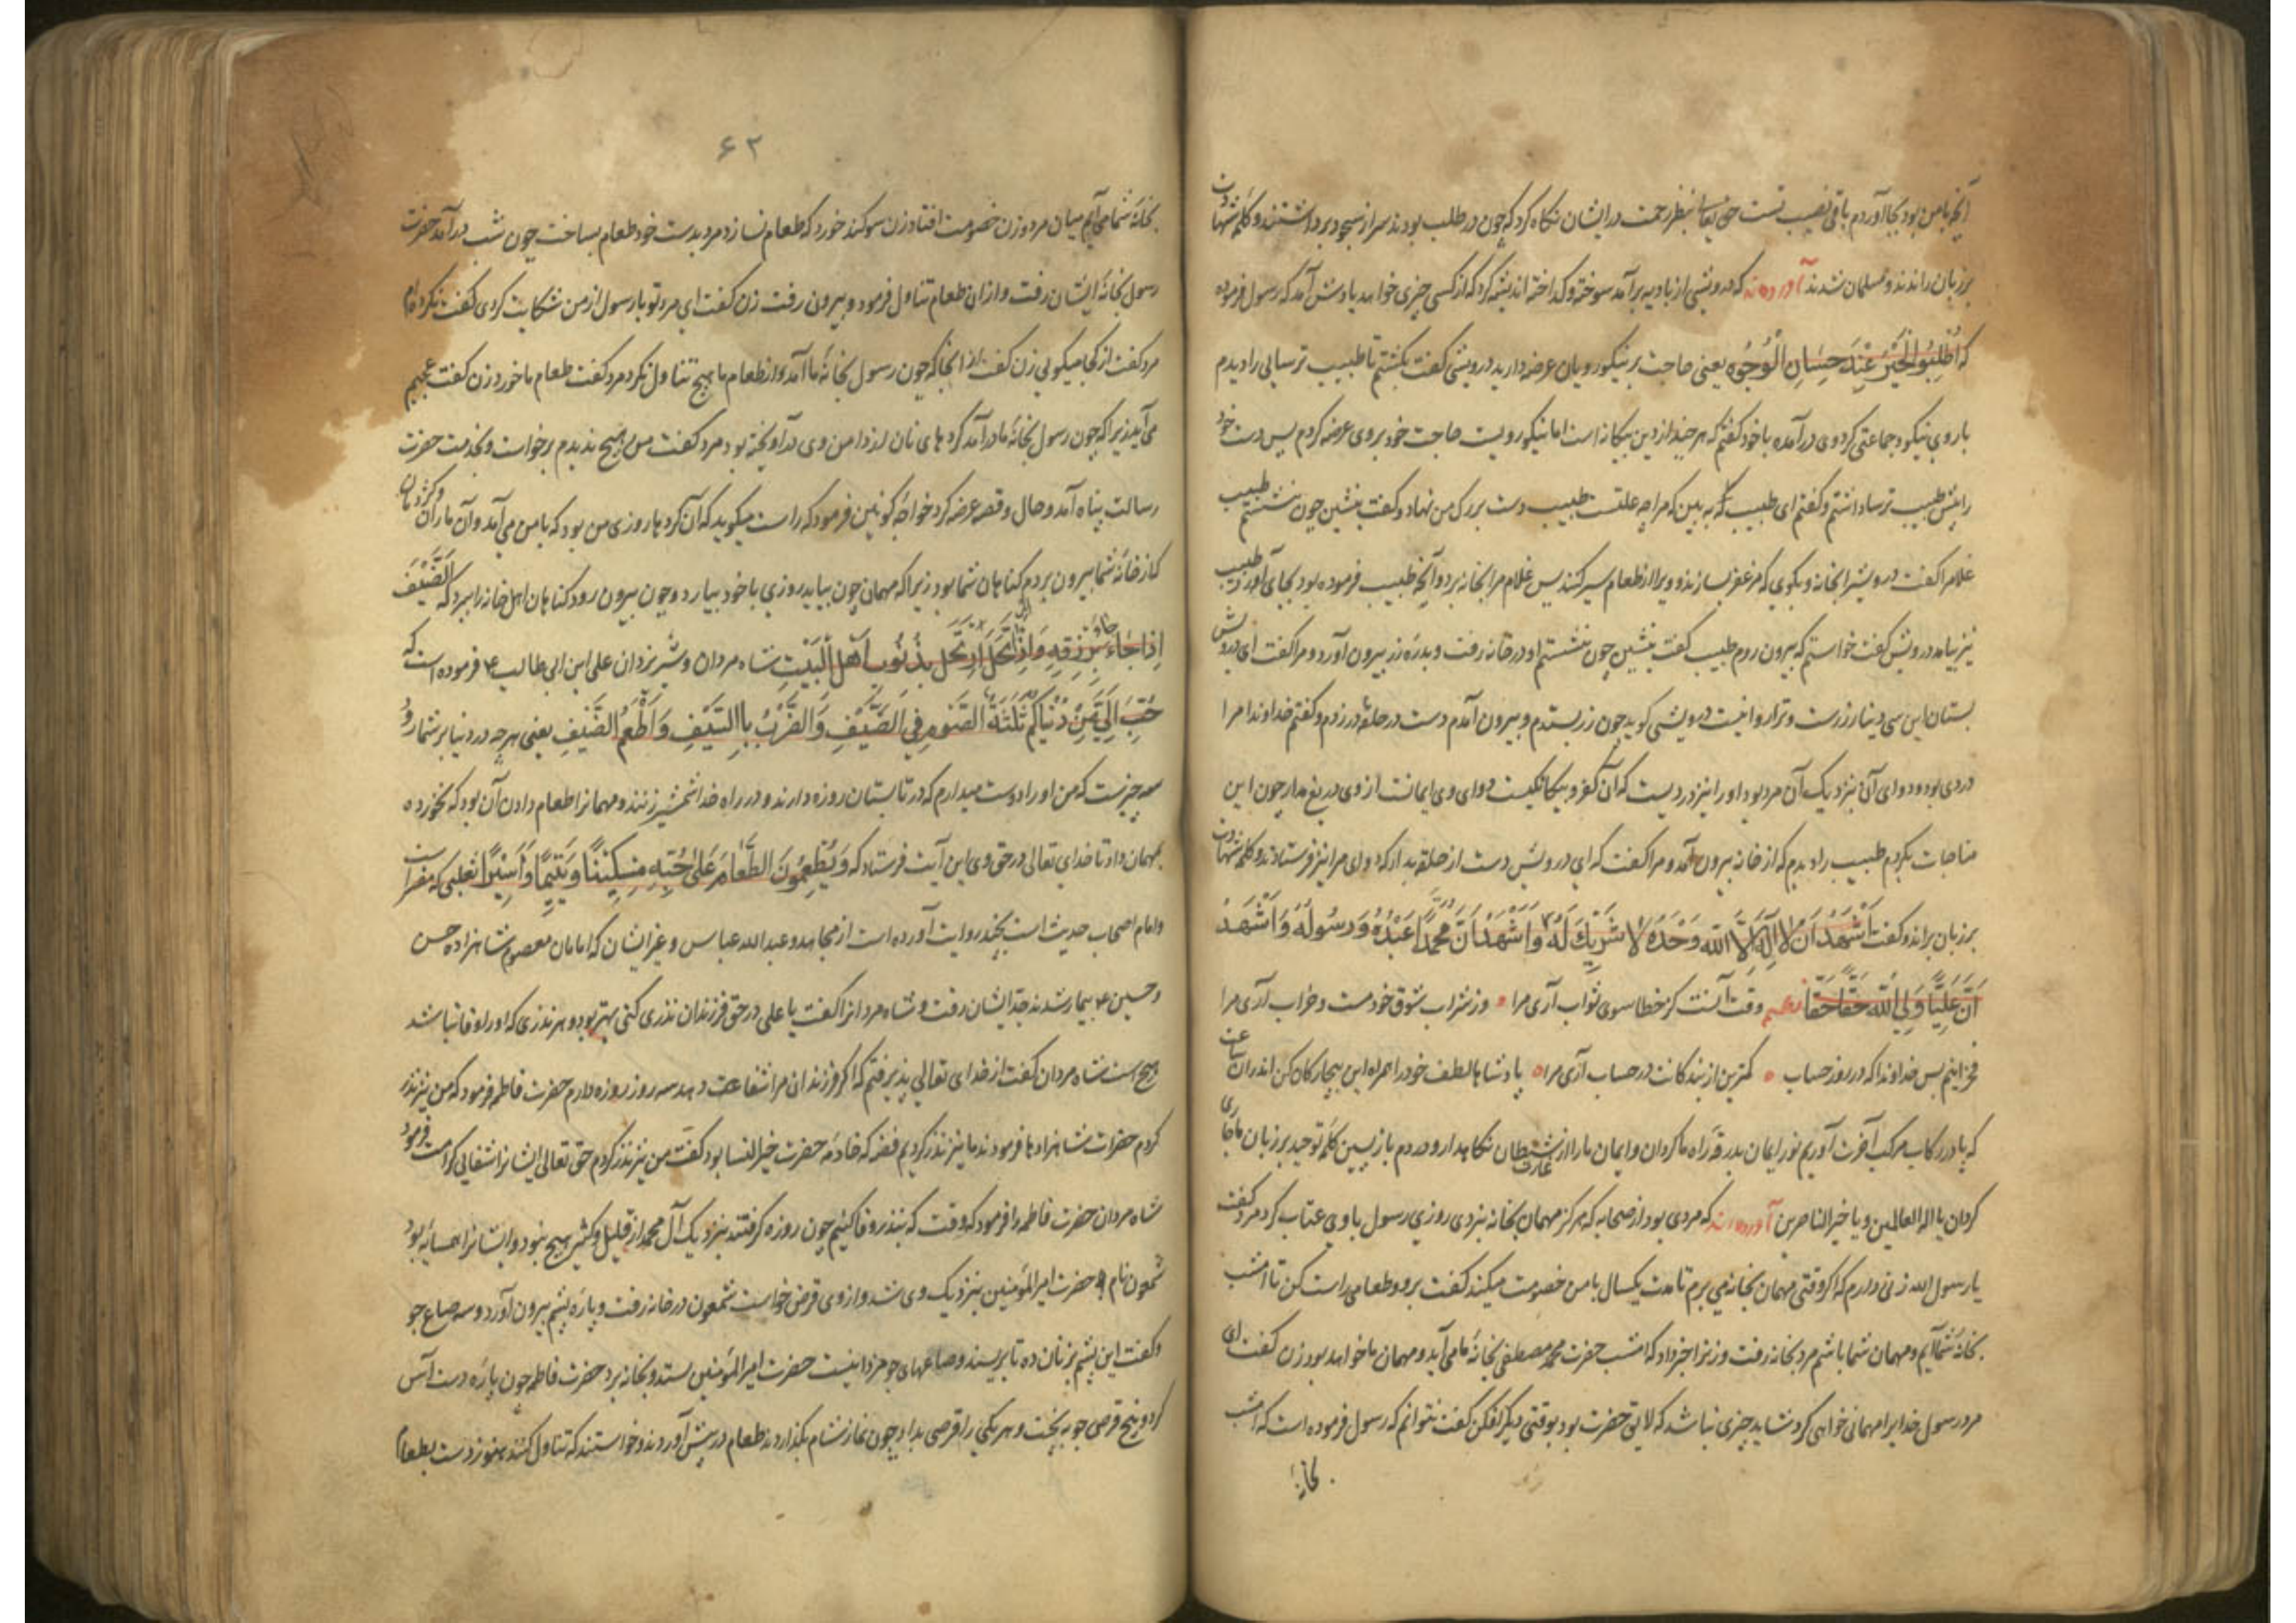 آنچه با من بود بجا آوردم باقی نصیب تست حق تعالی بنظر رحمت در ایشان نگاه کرد که چون در طلب بودند سر از سجود برداشتند و کلمه شهادت
بر زبان راندند و مسلمان شدند آورده‌اند که درویشی از بادیه برآمد سوخته و گداخته اندیشه کرد که از کسی چیزی خواهد یادش آمد که رسول فرموده
که اُطْلُبُوا الْخَیْرَ عِنْدَ حِسَانِ الْوُجُوه یعنی حاجت بر نیکورویان عرضه دارید درویش گفت بگشتم تا طبیب ترسایی را دیدم
با روی نیکو و جماعتی گرد وی درآمده با خود گفتم که هر چند از دین بیگانه است اما نیکورویست حاجت خود بر وی عرضه کردم پس دست خود
را پیش طبیب ترسا داشتم و گفتم ای طبیب به بین که مرا چه علتست طبیب دست بر رگ من نهاد و گفت بنشین چون بنشستم
غلام را گفت درویش را بخانه و بگوی که مزعفر بسازند و ویرا از طعام سیر کنند پس غلام مرا بخانه برد و آنچه طبیب فرموده بود بجای آورد طبیب
نیز بیامد درویش گفت خواستم که بیرون روم طبیب گفت بنشین چون بنشستم او در خانه رفت و بدره زر بیرون آورد و مرا گفت ای درویش
بستان این سی دینار زرست و ترا روانیست درویش گوید چون زر بستدم و بیرون آمدم دست در حلقه در زدم و گفتم خداوندا مرا
دردی بود و دوای آن بنزدیک آن مرد بود او را نیز دردیست که آن کفر و بیگانگیست دوای وی ایمانست از وی دریغ مدار چون این
مناجات بکردم طبیب را دیدم که از خانه بیرون آمد و مرا گفت که ای درویش دست از حلقه بدار که دوای مرا نیز فرستادند و کلمه شهادت
بر زبان براند و گفت اَشْهَدُ اَنْ لا اِلٰهَ اِلَّا اللّه وَحْدَهُ لا شَرِیكَ لَهُ وَاَشْهَدُ اَنَّ مُحَمَّدًا عَبْدُهُ وَرَسُولُهُ وَاَشْهَدُ
اَنَّ عَلِیًّا وَلِیُّ اللّه حَقًّا حَقًّا وقت آنست کز خطا سوی ثواب آری مرا وز شراب شوق خود مست و خراب آری مرا
فخر اینم بس خداوندا که در روز حساب کمترین از بندگانت در حساب آری مرا پادشاها لطف خود را همراه این بیچارگان کن اندران ساعت
که پا در رکاب مرکب آخرت آوریم نور ایمان بدرقه راه ما گردان و ایمان ما را از شیطان نگاه دار و در دم بازپسین کلمه توحید بر زبان ما جاری
گردان یا اله العالمین و یا خیر الناصرین آورده‌اند که مردی بود از صحابه که هرگز مهمان بخانه نبردی روزی رسول با وی عتاب کرد مرد گفت
یا رسول الله زنی دارم که اگر وقتی مهمان بخانه می برم تا مدت یکسال با من خصومت میکند گفت برو و طعامی راست کن تا امشب
بخانه شما آیم و مهمان شما باشم مرد بخانه رفت و زنرا خبر داد که امشب حضرت محمد مصطفی بخانه ما می آید و مهمان ما خواهد بود زن گفت ای
مرد رسول خدایرا مهمانی خواهی کرد نشاید چیزی نباشد که لایق حضرت بود بوقتی دیگر افکن گفت نتوانم که رسول فرموده است که امشب
بخانه
۶۲
بخانه شما می آیم میان مرد و زن خصومت افتاد زن سوگند خورد که طعام نسازد مرد بدست خود طعام بساخت چون شب درآمد حضرت
رسول بخانه ایشان رفت و از ان طعام تناول فرمود و بیرون رفت زن گفت ای مرد تو با رسول از من شکایت کردی گفت نکرده‌ام
مرد گفت از کجا میگویی زن گفت از انجا که چون رسول بخانه ما آمد و از طعام ما هیچ تناول نکرد مرد گفت طعام ما خورد زن گفت عجبم
می آید زیرا که چون رسول بخانه ما درآمد گرده های نان از دامن وی درآویخته بود مرد گفت من هیچ ندیدم برخواست و بخدمت حضرت
رسالت پناه آمد و حال و قصه عرضه کرد خواجه کونین فرمود که راست میگوید که آن گرده ها روزی من بود که با من می آمد و آن ماران و کژدمان
که از خانه شما بیرون بردم گناهان شما بود زیرا که مهمان چون بیاید روزی با خود بیارد و چون بیرون رود گناهان اهل خانه را ببرد که اَلضَّیْفُ
اِذَا جَاءَ جَاءَ بِرِزْقِهِ وَاِذَا ارْتَحَلَ ارْتَحَلَ بِذُنُوبِ اَهْلِ الْبَیْتِ شاه مردان و شیر یزدان علی ابن ابی طالب ع فرموده است که
حُبِّبَ اِلَیَّ مِنْ دُنْیَاکُمْ ثَلٰثَةٌ الصَّوْمُ فِی الصَّیْفِ وَالضَّرْبُ بِالسَّیْفِ وَاِطْعَمُ الضَّیْفِ یعنی هر چه در دنیا بر شمارند
سه چیزست که من او را دوست میدارم که در تابستان روزه دارند و در راه خدا شمشیر زنند و مهمانرا طعام دادن آن بود که نخورده
بمهمان داد تا خدای تعالی در حق وی این آیت فرستاد که وَیُطْعِمُونَ الطَّعَامَ عَلٰی حُبِّهِ مِسْکِینًا وَیَتِیمًا وَاَسِیرًا ثعلبی که مفسرانست
و امام اصحاب حدیث است بچند روایت آورده است از مجاهد و عبدالله عباس و غیر ایشان که امامان معصوم شاهزاده حسن
و حسین ع بیمار شدند جد ایشان رفت و شاه مردانرا گفت یا علی در حق فرزندان نذری کنی بهتر بود و هر نذری که او را وفا نباشد
هیچ است شاه مردان گفت از خدای تعالی پذیرفتم که اگر فرزندان مرا شفا دهد سه روز روزه دارم حضرت فاطمه فرمود که من نیز نذر
کردم حضرات شاهزادها فرمودند ما نیز نذر کردیم فضه که خادمه حضرت خیر النسا بود گفت من نیز نذر کردم حق تعالی ایشانرا شفایی کرامت فرمود
شاه مردان حضرت فاطمه را فرمود که وقت که بنذر وفا کنیم چون روزه گرفتند بنزدیک آل محمد از قلیل و کثیر هیچ نبود و ایشانرا همسایه بود
شمعون نام حضرت امیرالمؤمنین بنزدیک وی شد و از وی قرض خواست شمعون در خانه رفت و پاره پشم بیرون آورد و سه صاع جو
و گفت این پشم بزنان ده تا بریسند و صاعهای جو مزد اینست حضرت امیرالمؤمنین بستد و بخانه برد حضرت فاطمه چون پاره دست آس
کرد و پنج قرص جو بپخت و هر یکی را قرصی بداد چون نماز شام بگذاردند طعام در پیش آوردند و خواستند که تناول کنند هنوز دست بطعام